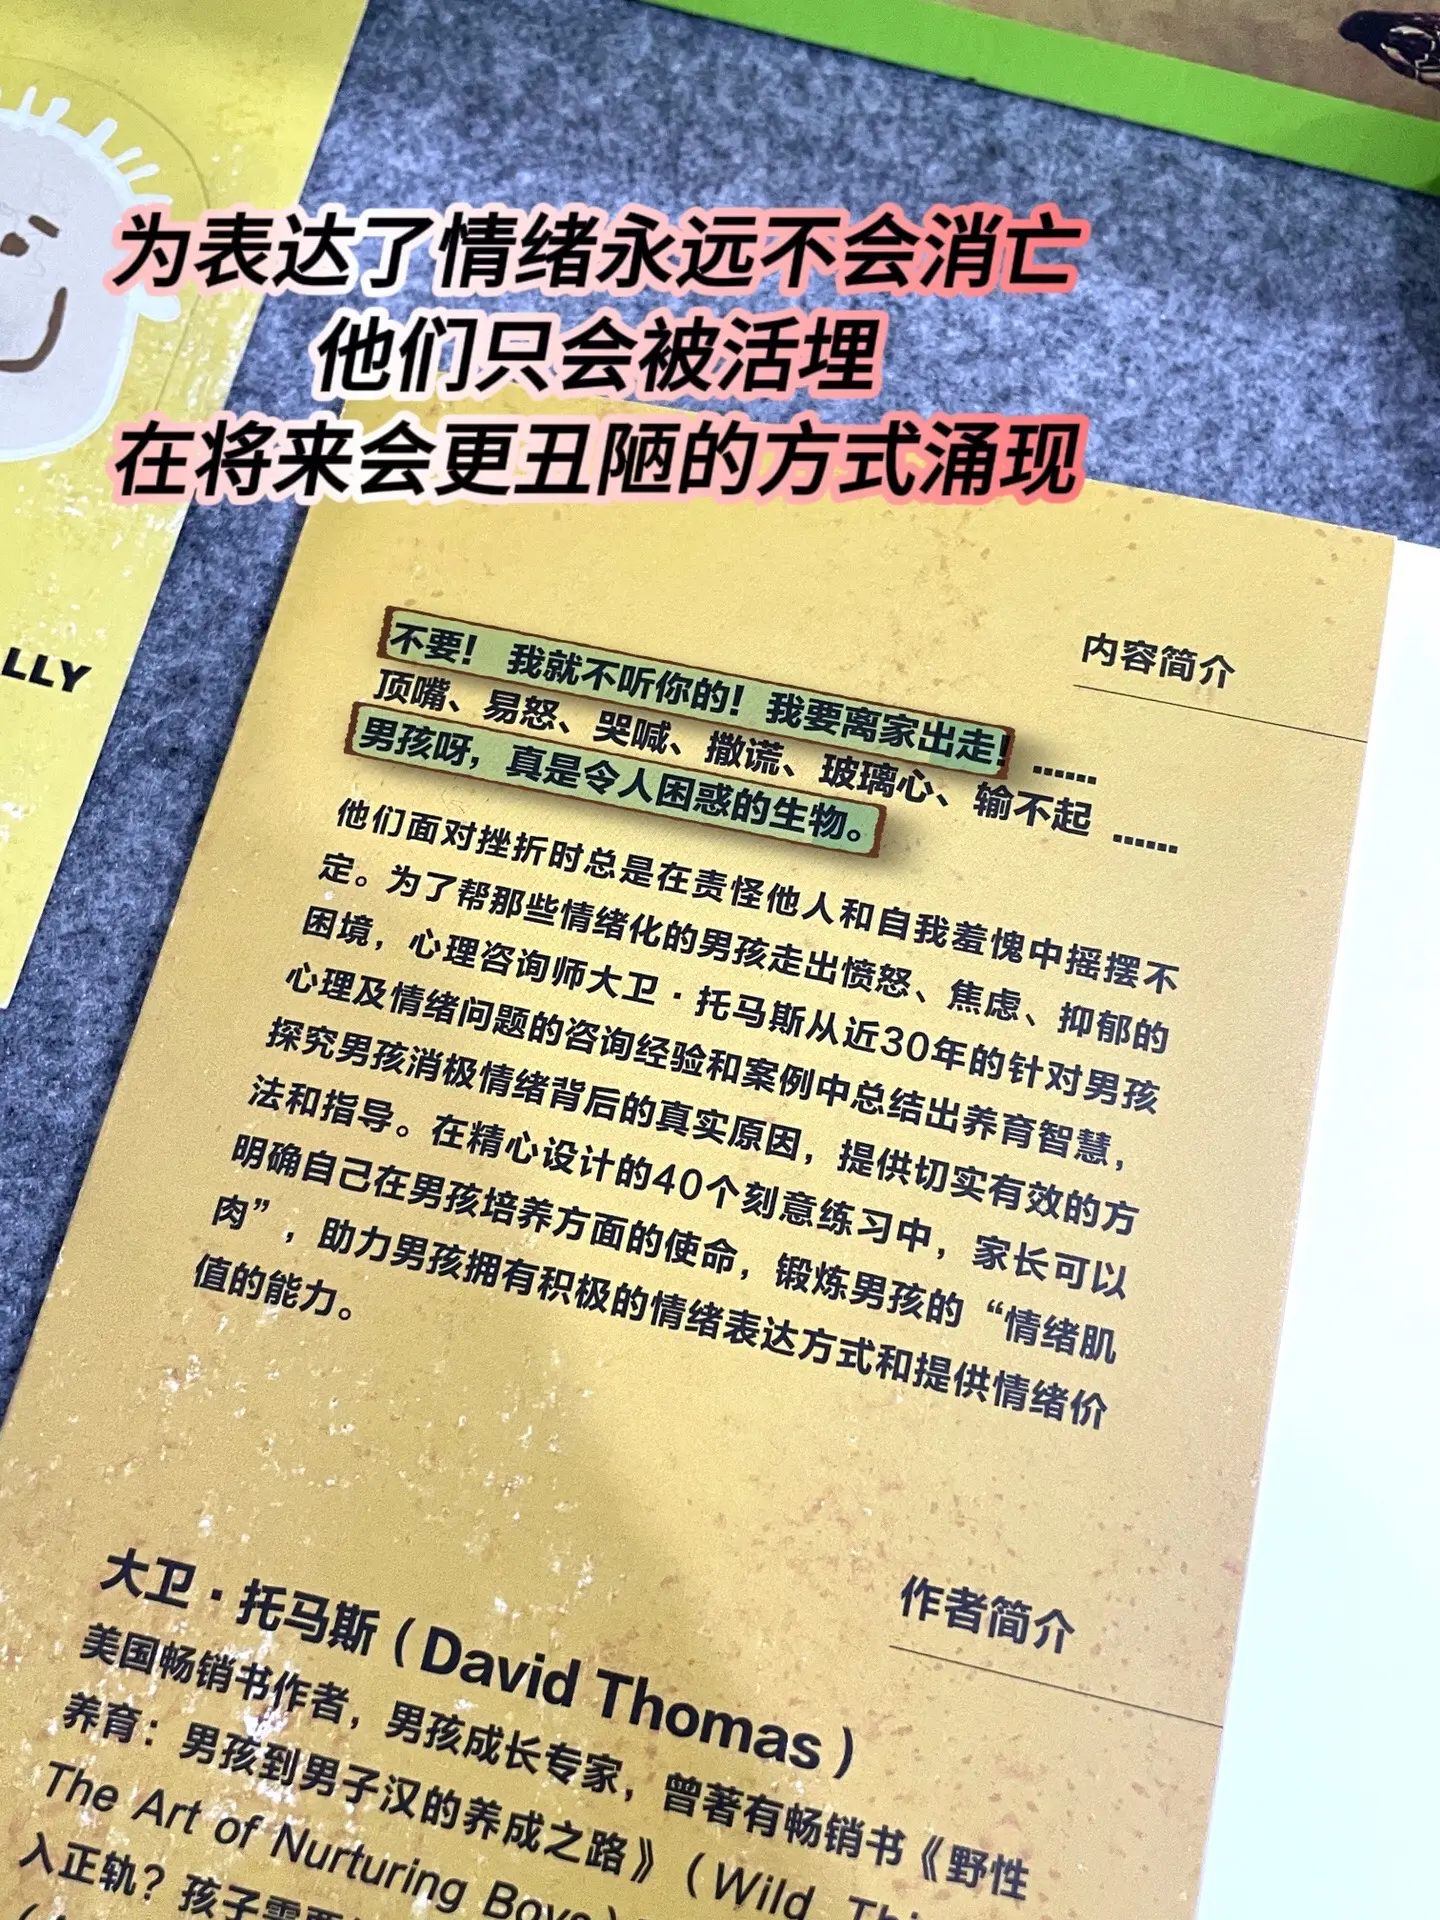 为表达了情绪永远不会消亡
他们只会被活埋
在将来会更丑陋的方式涌现
LLY
内容简介
不要！我就不听你的！我要离家出走！……
顶嘴、易怒、哭喊、撒谎、玻璃心、输不起……
男孩呀，真是令人困惑的生物。
他们面对挫折时总是在责怪他人和自我羞愧中摇摆不
定。为了帮那些情绪化的男孩走出愤怒、焦虑、抑郁的
困境，心理咨询师大卫·托马斯从近30年的针对男孩
心理及情绪问题的咨询经验和案例中总结出养育智慧，
探究男孩消极情绪背后的真实原因，提供切实有效的方
法和指导。在精心设计的40个刻意练习中，家长可以
明确自己在男孩培养方面的使命，锻炼男孩的“情绪肌
肉”，助力男孩拥有积极的情绪表达方式和提供情绪价
值的能力。
作者简介
大卫·托马斯（David Thomas）
美国畅销书作者，男孩成长专家，曾著有畅销书《野性
养育：男孩到男子汉的养成之路》（Wild
The Art of Nurturing Boys）
入正轨？孩子需要